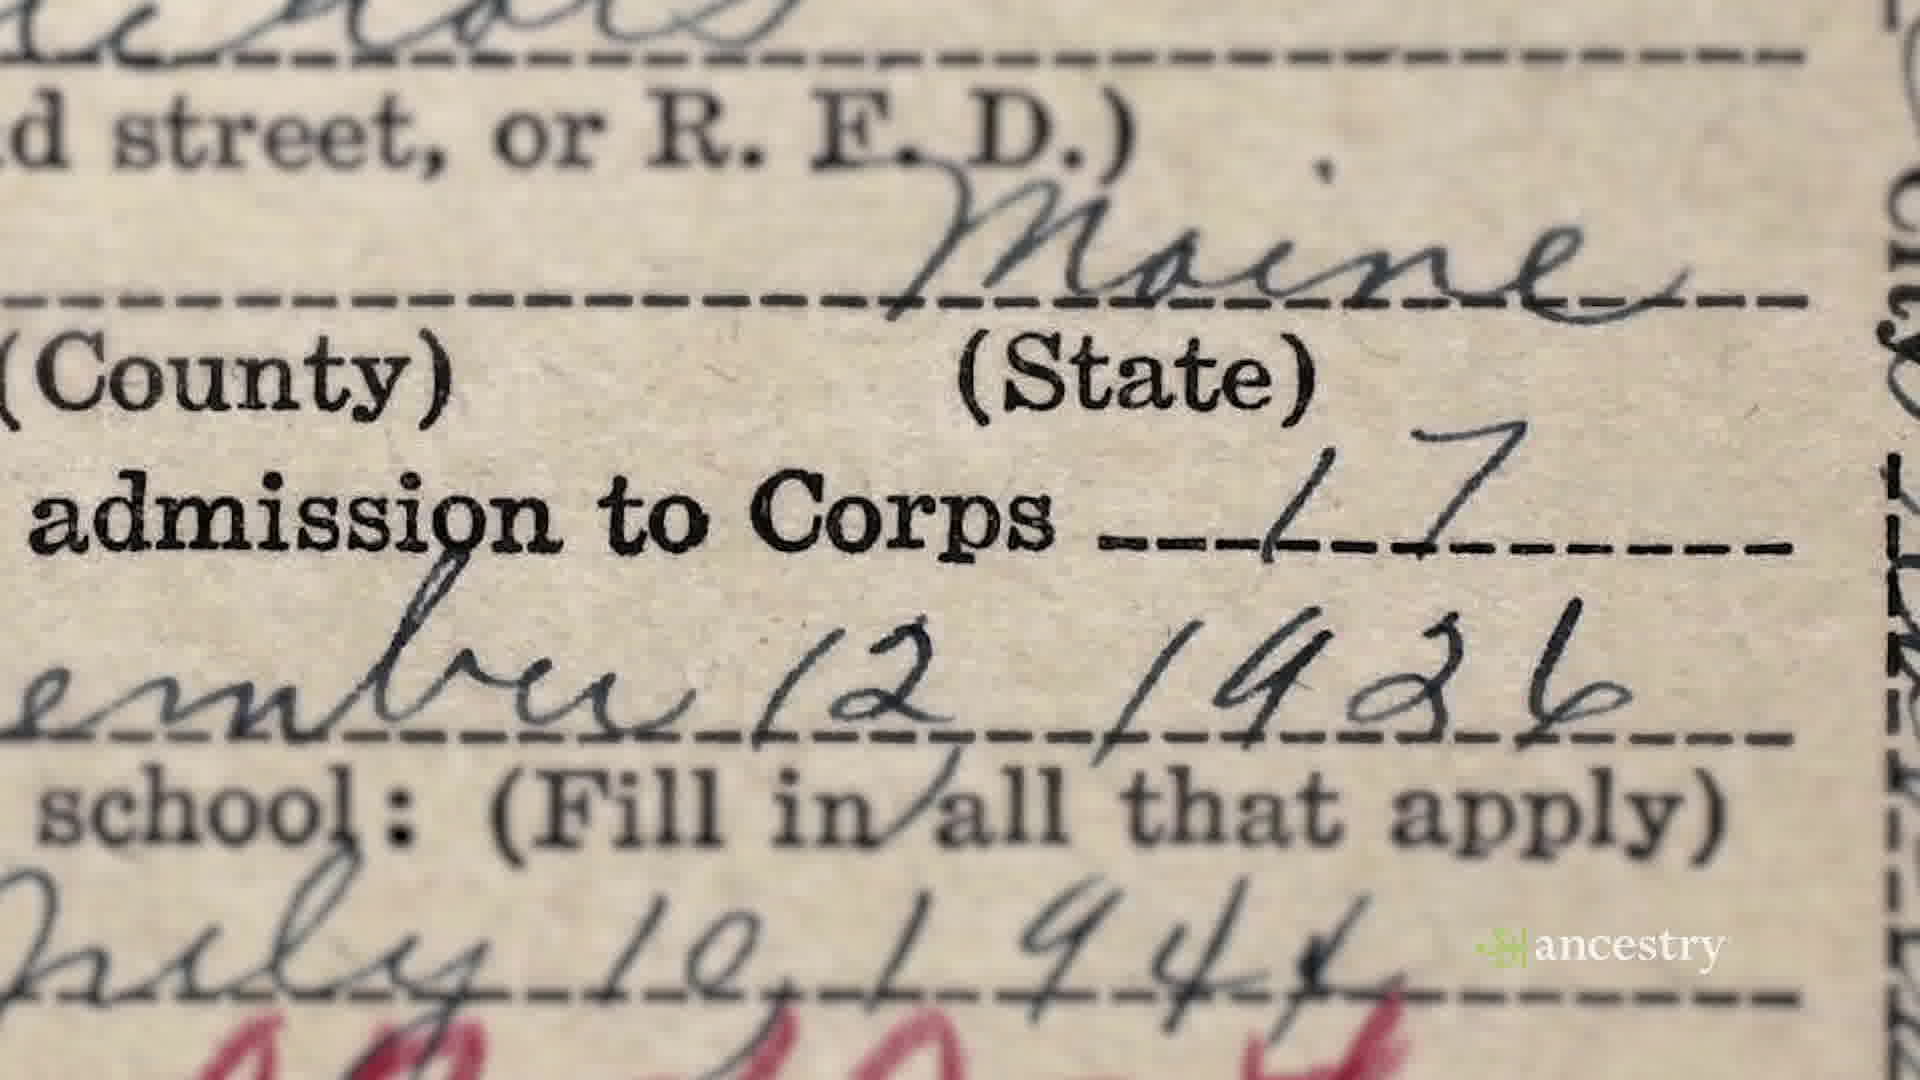 d street, or R. F. D.)
Maine
(County) (State)
admission to Corps 17
ember 12, 1926
school: (Fill in all that apply)
July 10, 1944
ancestry